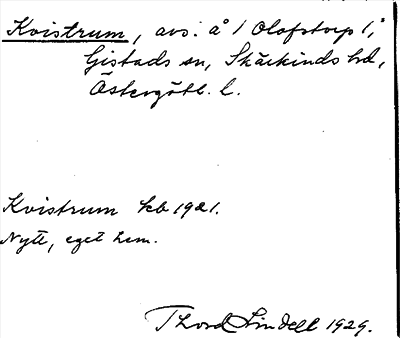 Kvistrum, avs. å 1 Olofstorp 1,
Gistads sn, Skärkinds hd,
Östergötl. l.
Kvistrum kb 1921.
Nytt, eget hem.
Thord Lindell 1929.